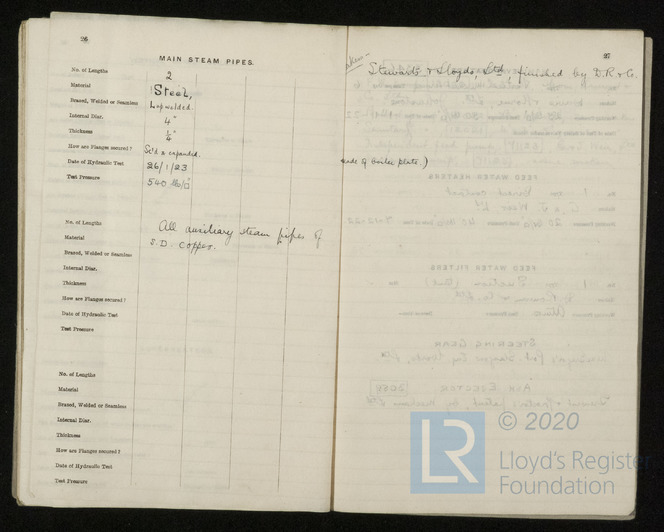 26
MAIN STEAM PIPES.
No. of Lengths 2
Material Steel,
Brazed, Welded or Seamless Lap welded.
Internal Diar. 4"
Thickness 1/4"
How are Flanges secured? Sc'd & expanded.
Date of Hydraulic Test 26/1/23
Test Pressure 540 lbs/□"
No. of Lengths
Material
Brazed, Welded or Seamless
Internal Diar.
Thickness
How are Flanges secured?
Date of Hydraulic Test
Test Pressure
All auxiliary steam pipes of
S.D. copper.
No. of Lengths
Material
Brazed, Welded or Seamless
Internal Diar.
Thickness
How are Flanges secured?
Date of Hydraulic Test
Test Pressure
27
Stewarts & Lloyds, Ltd, finished by D.R & Co.
side of boiler plate.)
LR
© 2020
Lloyd's Register
Foundation